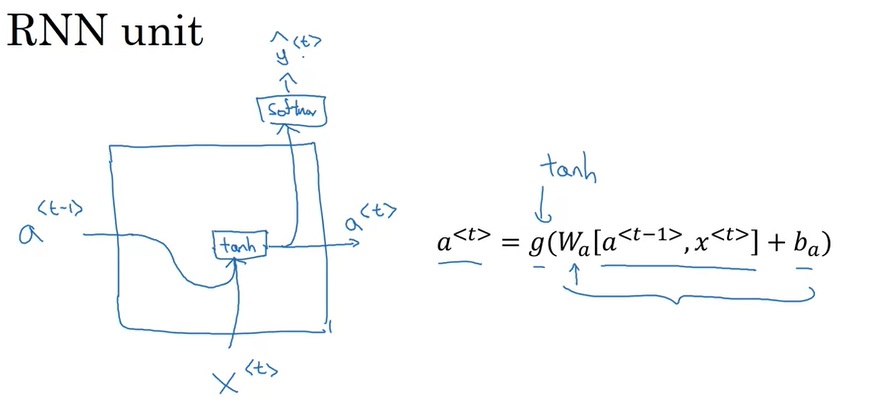 RNN unit
ŷ<t>
softmax
a<t-1>
tanh
a<t>
x<t>
tanh
a<t> = g(Wₐ[a<t-1>, x<t>] + bₐ)